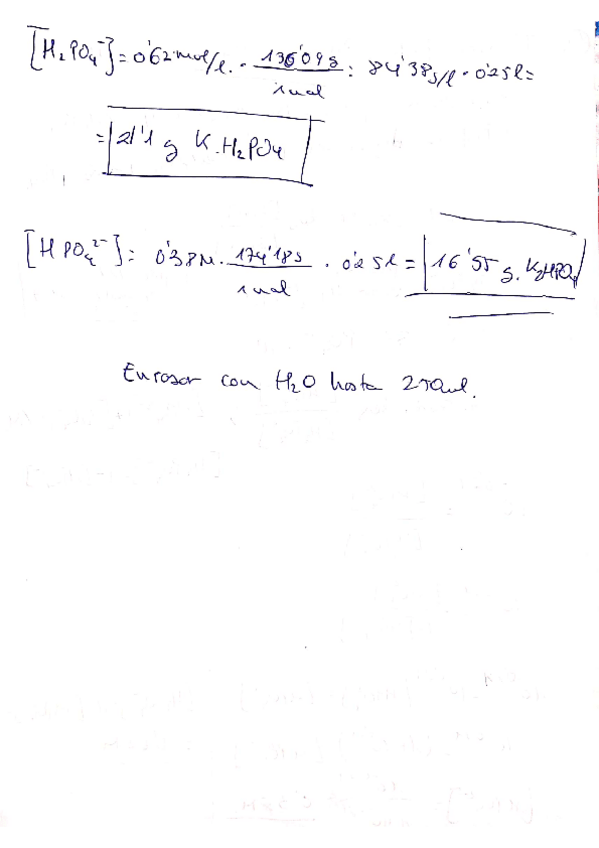 [H₂PO₄⁻] = 0'62 mol/l. · 136'09 g / 1 mol : 84'38 g/l · 0'25 l =
= 21'1 g K.H₂PO₄
[HPO₄²⁻] = 0'38 M. 174'18 g / 1 mol · 0'25 l = 16'55 g. K₂HPO₄
Enrasar con H₂O hasta 250 ml.